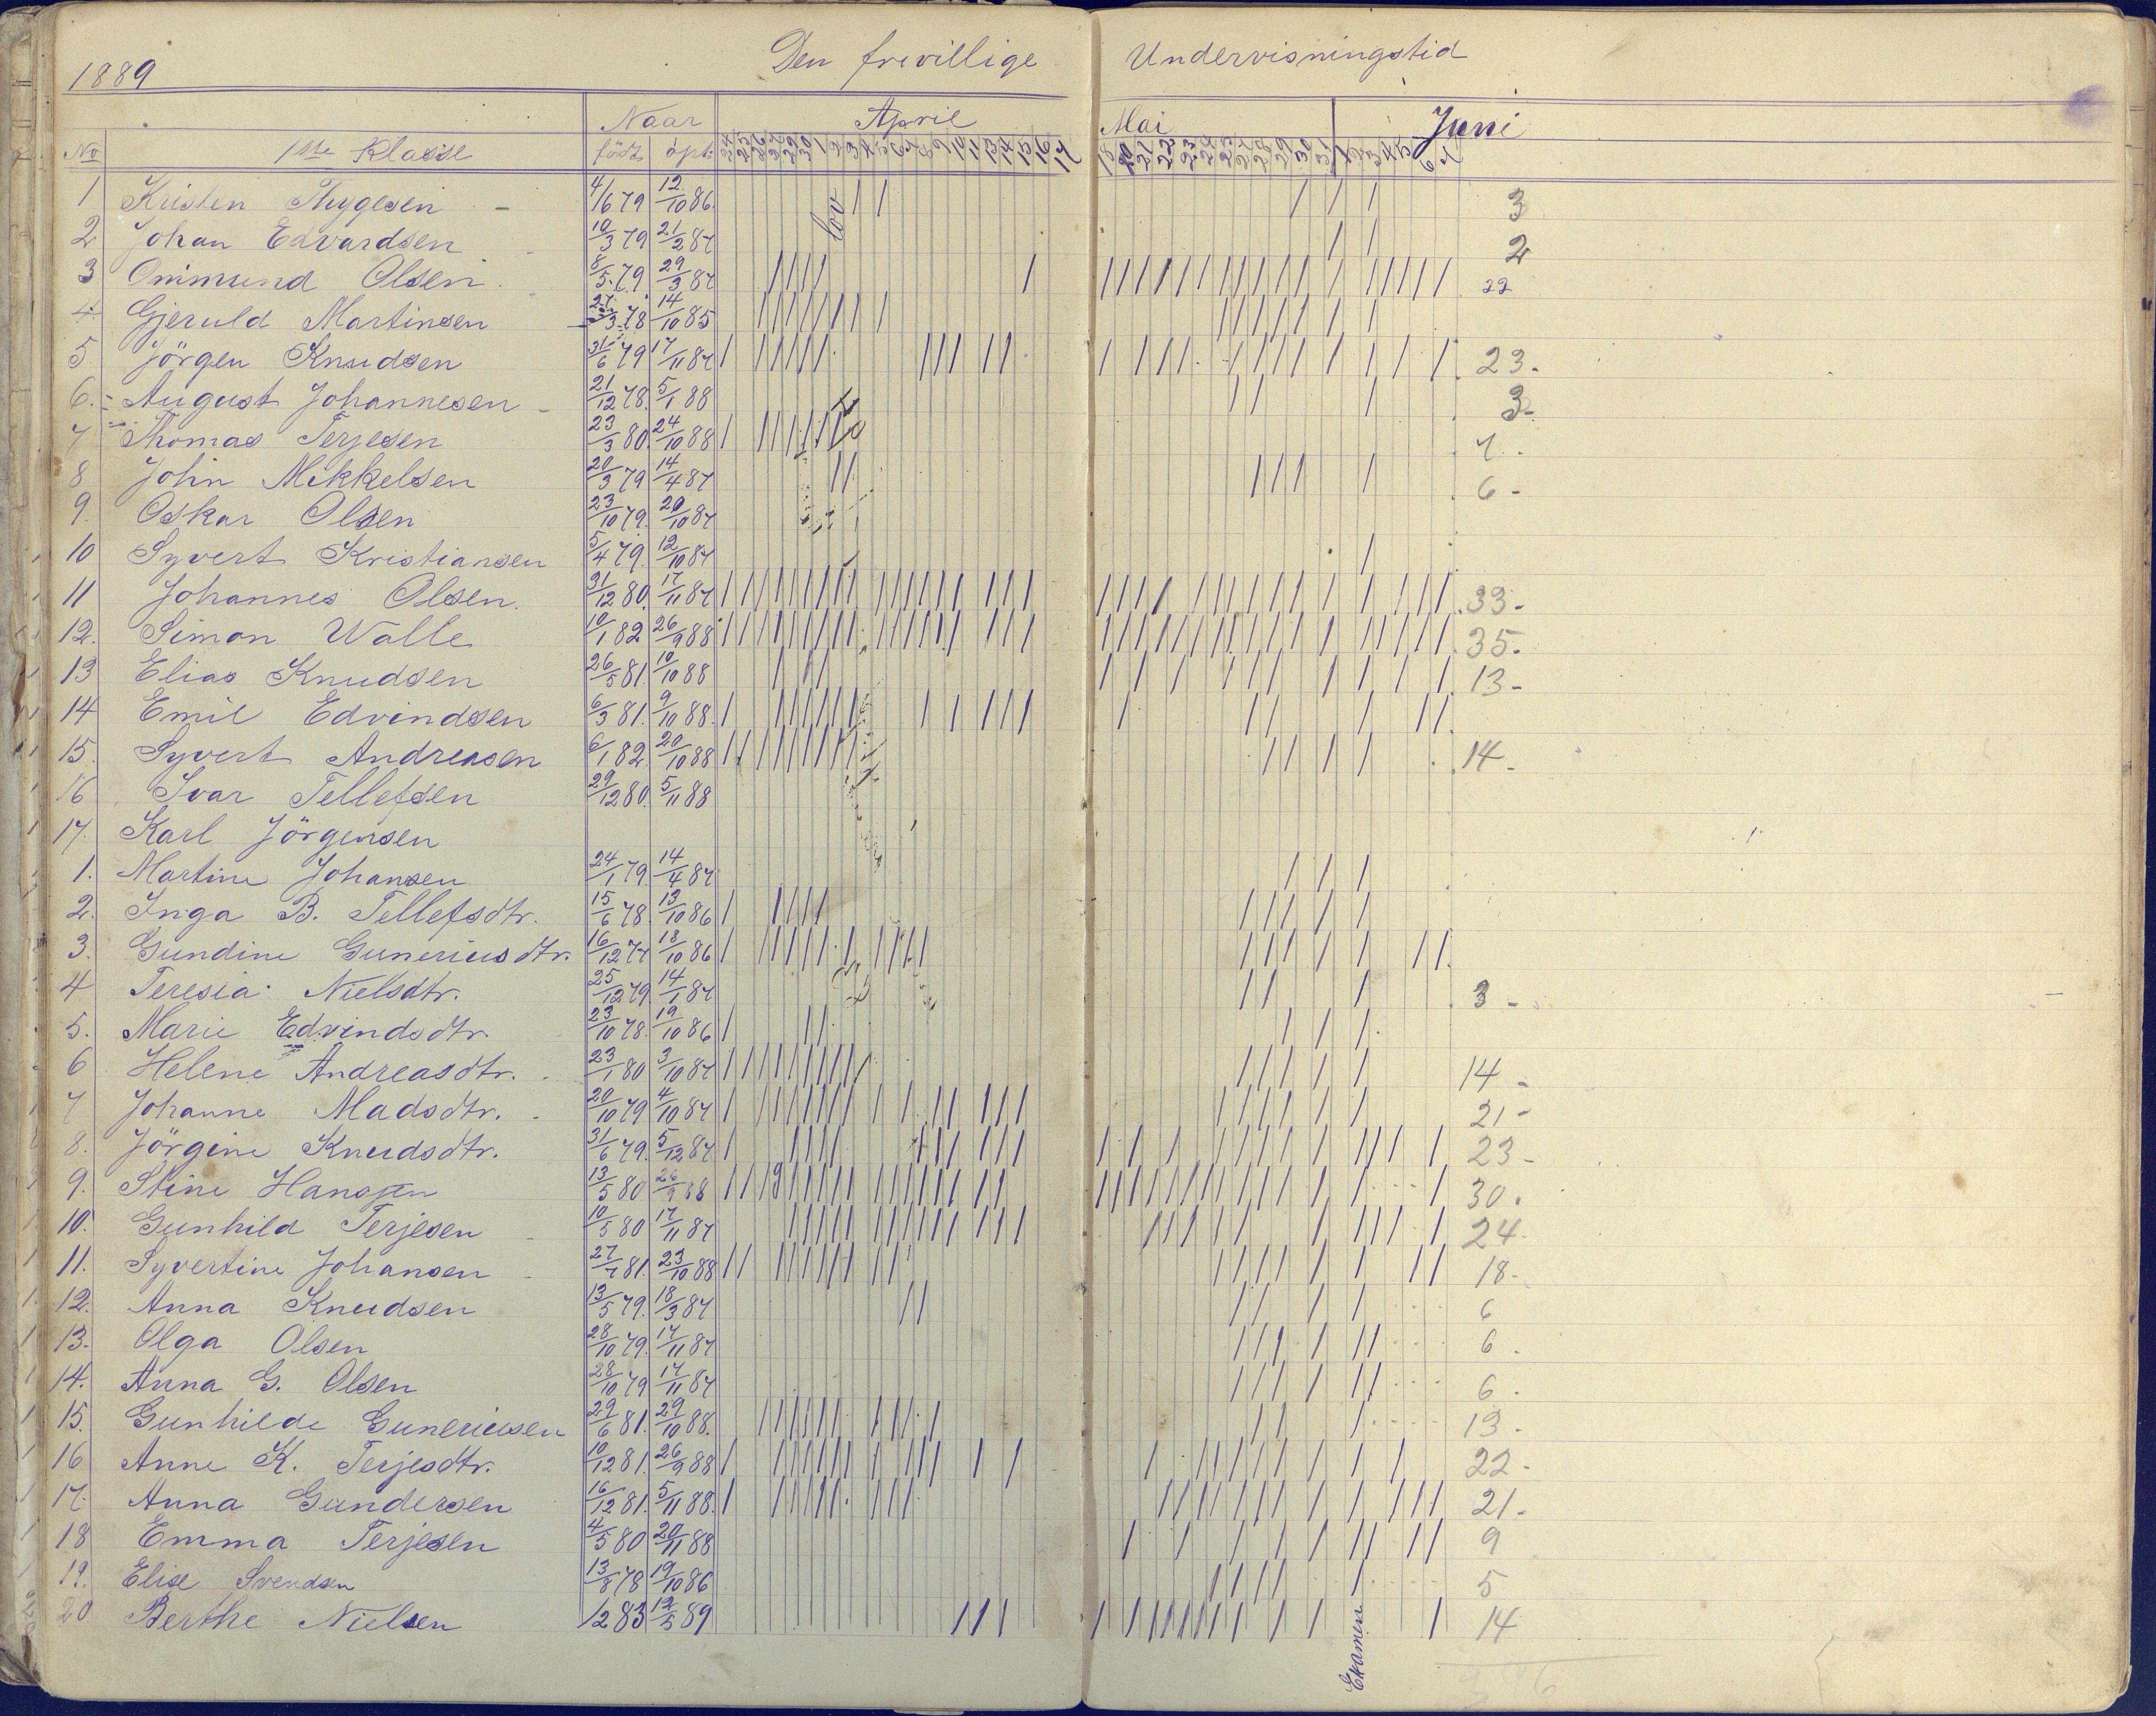 1889 Den frivillige Undervisningstid
Naar April Mai Juni
No 1ste Klasse född opt.
1 Kristen Thygesen - 4/6 79 12/10 86. lov 3
2 Johan Edvardsen 10/3 79 21/2 87 2
3 Ommund Olsen 8/5 79 29/3 87 22
4 Gjeruld Martinsen 3 78 14/10 85
5. Jörgen Knudsen 31/6 79 17/11 87 23.
6. August Johannesen 21/12 78. 5/1 88 3-
7 Thomas Terjesen 23/3 80. 24/10 88 7.
8 John Mikkelsen 20/3 79 14/4 87 6-
9. Oskar Olsen 23/10 79. 20/10 87
10 Syvert Kristiansen 5/4 79. 12/10 87
11 Johannes Olsen. 31/12 80. 17/11 87 33-
12. Simon Walle 10/1 82 26/9 88 35.
13 Elias Knudsen 26/5 81. 10/10 88 13-
14 Emil Edvindsen 6/3 81. 9/10 88.
15. Syvert Andreasen 6/1 82. 20/10 88 14-
16 Ivar Tellefsen 29/12 80. 5/11 88
17. Karl Jörgensen
1. Martine Johansen 24/1 79. 14/4 87
2. Inga B. Tellefsdtr. 15/6 78. 13/10 86
3. Gundine Guneriusdtr. 16/12 77 18/10 86
4 Teresia Nielsdtr. 25/12 79. 14/1 87 3-
5. Marie Edvindsdtr. 23/10 78. 19/10 86
6 Helene Andreasdtr. 23/1 80 3/10 87 14-
7 Johanne Madsdtr. 20/10 79 4/10 87 21-
8. Jörgine Knudsdtr. 31/6 79. 5/12 87 23-
9. Stine Hansen 13/5 80 26/9 88 30.
10. Gunhild Terjesen 10/5 80 17/11 87 24.
11. Syvertine Johansen 27/7 81. 23/10 88 18-
12. Anna Knudsen 13/5 79. 18/3 87 6
13. Olga Olsen 28/10 79. 17/11 87 6.
14. Anna G. Olsen 28/10 79 17/11 87 6.
15. Gunhilde Guneriusen 29/6 81. 29/10 88. 13.
16 Anne K. Terjesdtr. 10/12 81. 26/9 88 22-
17. Anna Gundersen 16/12 81. 5/11 88. 21-
18 Emma Terjesen 4/5 80 20/11 88 9
19. Elise Svendsen 13/8 78 19/10 86 5
20 Berthe Nielsen 1/2 83 12/5 89 14
Examen
396